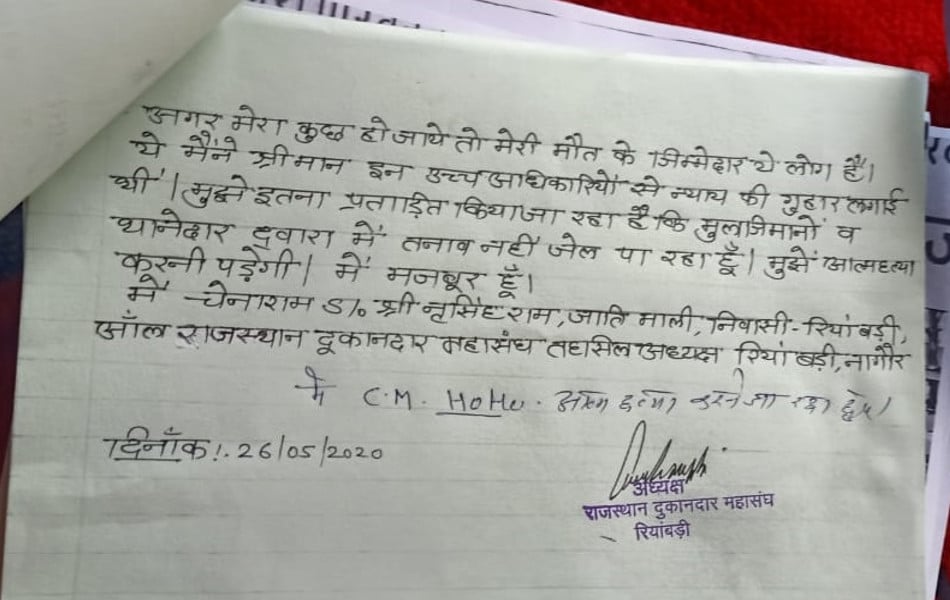 अगर मेरा कुछ हो जाये तो मेरी मौत के जिम्मेदार ये लोग हैं।
ये मैंने श्रीमान इन उच्च आधिकारियों से न्याय की गुहार लगाई
थी। मुझे इतना प्रताड़ित किया जा रहा है कि मुलजिमानों व
थानेदार द्वारा में तनाव नहीं जेल पा रहा हूँ। मुझें आत्महत्या
करनी पड़ेगी। में मजबूर हूँ।
में चेनाराम S/o श्री नृसिंह राम, जाति माली, निवासी - रियां बड़ी,
ऑल राजस्थान दूकानदार महासंघ तहसिल अध्यक्ष रियां बड़ी, नागौर
में C.M. HOHO. आत्म हत्या करने जा रहा हूँ।
दिनाँक:. 26/05/2020
अध्यक्ष
राजस्थान दुकानदार महासंघ
रियांबड़ी